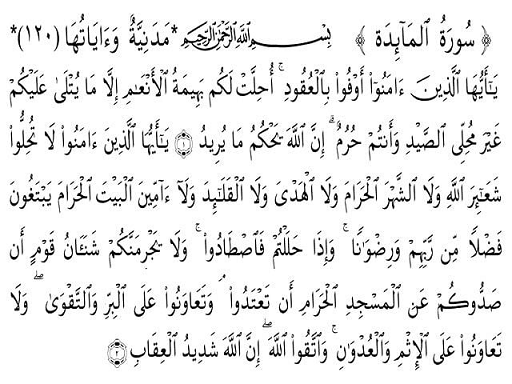 ﴿ سُورَةُ ٱلْمَآئِدَة ﴾ بِسْمِ ٱللَّهِ ٱلرَّحْمَٰنِ ٱلرَّحِيمِ *مَدَنِيَّةٌ وَءَايَاتُهَا (١٢٠)*
يَـٰٓأَيُّهَا ٱلَّذِينَ ءَامَنُوٓا۟ أَوْفُوا۟ بِٱلْعُقُودِ ۚ أُحِلَّتْ لَكُم بَهِيمَةُ ٱلْأَنْعَـٰمِ إِلَّا مَا يُتْلَىٰ عَلَيْكُمْ
غَيْرَ مُحِلِّى ٱلصَّيْدِ وَأَنتُمْ حُرُمٌ ۗ إِنَّ ٱللَّهَ يَحْكُمُ مَا يُرِيدُ ۝١ يَـٰٓأَيُّهَا ٱلَّذِينَ ءَامَنُوا۟ لَا تُحِلُّوا۟
شَعَـٰٓئِرَ ٱللَّهِ وَلَا ٱلشَّهْرَ ٱلْحَرَامَ وَلَا ٱلْهَدْىَ وَلَا ٱلْقَلَـٰٓئِدَ وَلَآ ءَآمِّينَ ٱلْبَيْتَ ٱلْحَرَامَ يَبْتَغُونَ
فَضْلًا مِّن رَّبِّهِمْ وَرِضْوَٰنًا ۚ وَإِذَا حَلَلْتُمْ فَٱصْطَادُوا۟ ۚ وَلَا يَجْرِمَنَّكُمْ شَنَـَٔانُ قَوْمٍ أَن
صَدُّوكُمْ عَنِ ٱلْمَسْجِدِ ٱلْحَرَامِ أَن تَعْتَدُوا۟ ۘ وَتَعَاوَنُوا۟ عَلَى ٱلْبِرِّ وَٱلتَّقْوَىٰ ۖ وَلَا
تَعَاوَنُوا۟ عَلَى ٱلْإِثْمِ وَٱلْعُدْوَٰنِ ۚ وَٱتَّقُوا۟ ٱللَّهَ ۖ إِنَّ ٱللَّهَ شَدِيدُ ٱلْعِقَابِ ۝٢